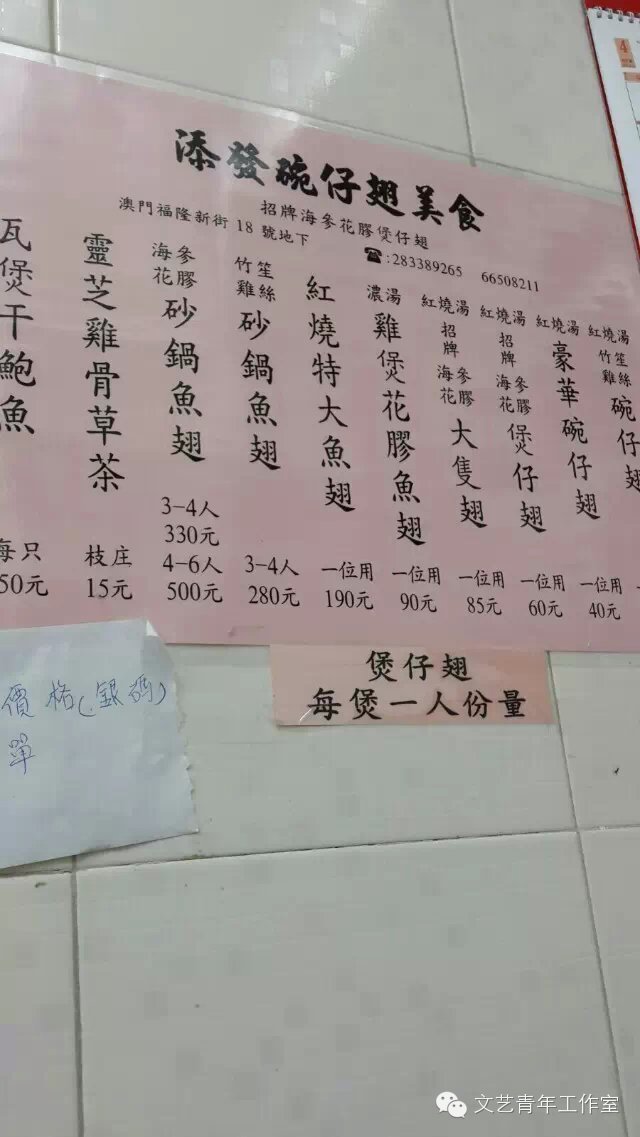 添發碗仔翅美食
招牌海參花膠煲仔翅
澳門福隆新街 18 號地下
☎:283389265 66508211
紅燒湯 竹笙雞絲 碗仔翅
紅燒湯 豪華碗仔翅 一位用 40元
紅燒湯 招牌 海參花膠 煲仔翅 一位用 60元
紅燒湯 招牌 海參花膠 大隻翅 一位用 85元
濃湯 雞煲花膠魚翅 一位用 90元
紅燒特大魚翅 一位用 190元
竹笙雞絲 砂鍋魚翅 3-4人 280元
海參花膠 砂鍋魚翅 3-4人 330元 4-6人 500元
靈芝雞骨草茶 枝庄 15元
瓦煲干鮑魚 每只 50元
煲仔翅
每煲一人份量
價格(銀碼)
單
4
文艺青年工作室